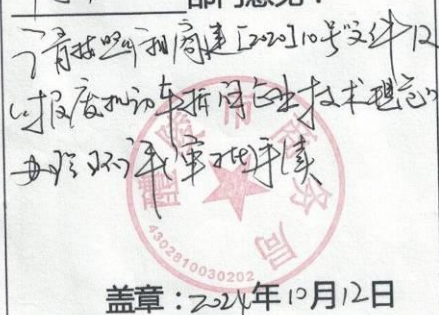 部门意见：
请按照湘商建[2020]10号文件及
《报废机动车拆解企业技术规范》
办理环评审批手续
醴陵市商务局
4302810030202
盖章：2024年10月12日